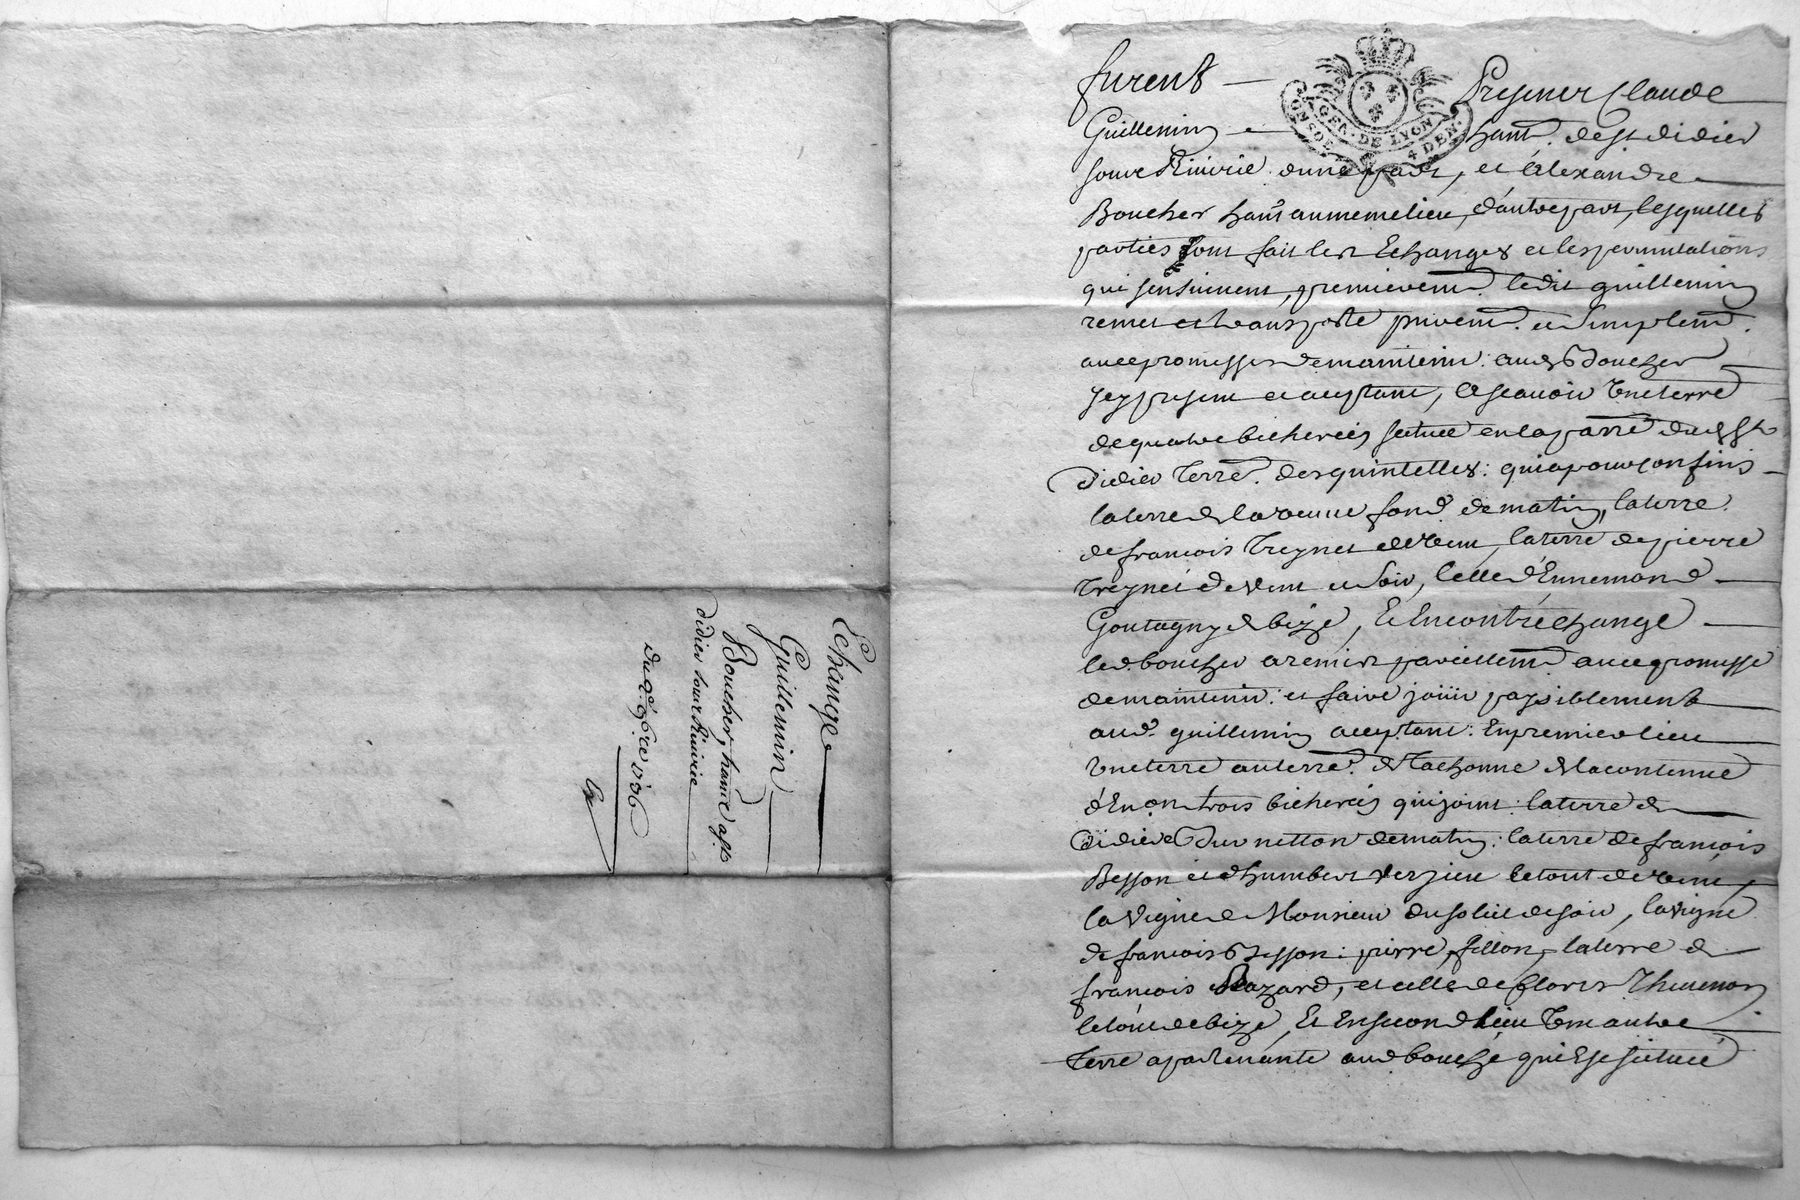 Echange
Guillemin
Boucher, hant a St
didier sour Riuirie
Du 9bre 1706
furent Presents Claude
GEN. DE LYON
4 DEN.
Guillemin hant. de St didier
sour Riuirie d'une part, et Alexandre
Boucher hant au meme lieu, d'autre part, lesquelles
parties font fait les Echanges et les permutations
qui sensuiuent, premieremt. ledit guillemin
remet et transporte puremt. et simplemt.
auec promesses de maintenir: aud Boucher
Icy present et aceptant, a scauoir Une terre
de quatre bicherees scituee en la parre dud St
Didier Terre. des quintelles: qui a pour confins
la terre de la veuue fond. de matin, la terre
de francois Treynet de vent, la terre de pierre
Treynet de vent et soir, celle d'Ennemond
Goutagny de bize, Et En contréchange
led. boucher a remis pareillemt auec promesse
de maintenir: et faire joüir paysiblement
aud. guillemin aceptant: En premier lieu
Une terre au terre. de Machonne de la contenue
d'Enon trois bicherees qui joint: la terre de
Didier Burnetton de matin: la terre de francois
Besson et d'humbert Verzieu le tout de vent,
la Vigne de Monsieur du soleil de soir, la vigne
de francois Besson: pierre fillon, la terre de
francois Bazard, et celle de floris Theuenon
le tout de bize, Et En second lieu Une autre
Terre apartenante aud bouché qui Est scituee